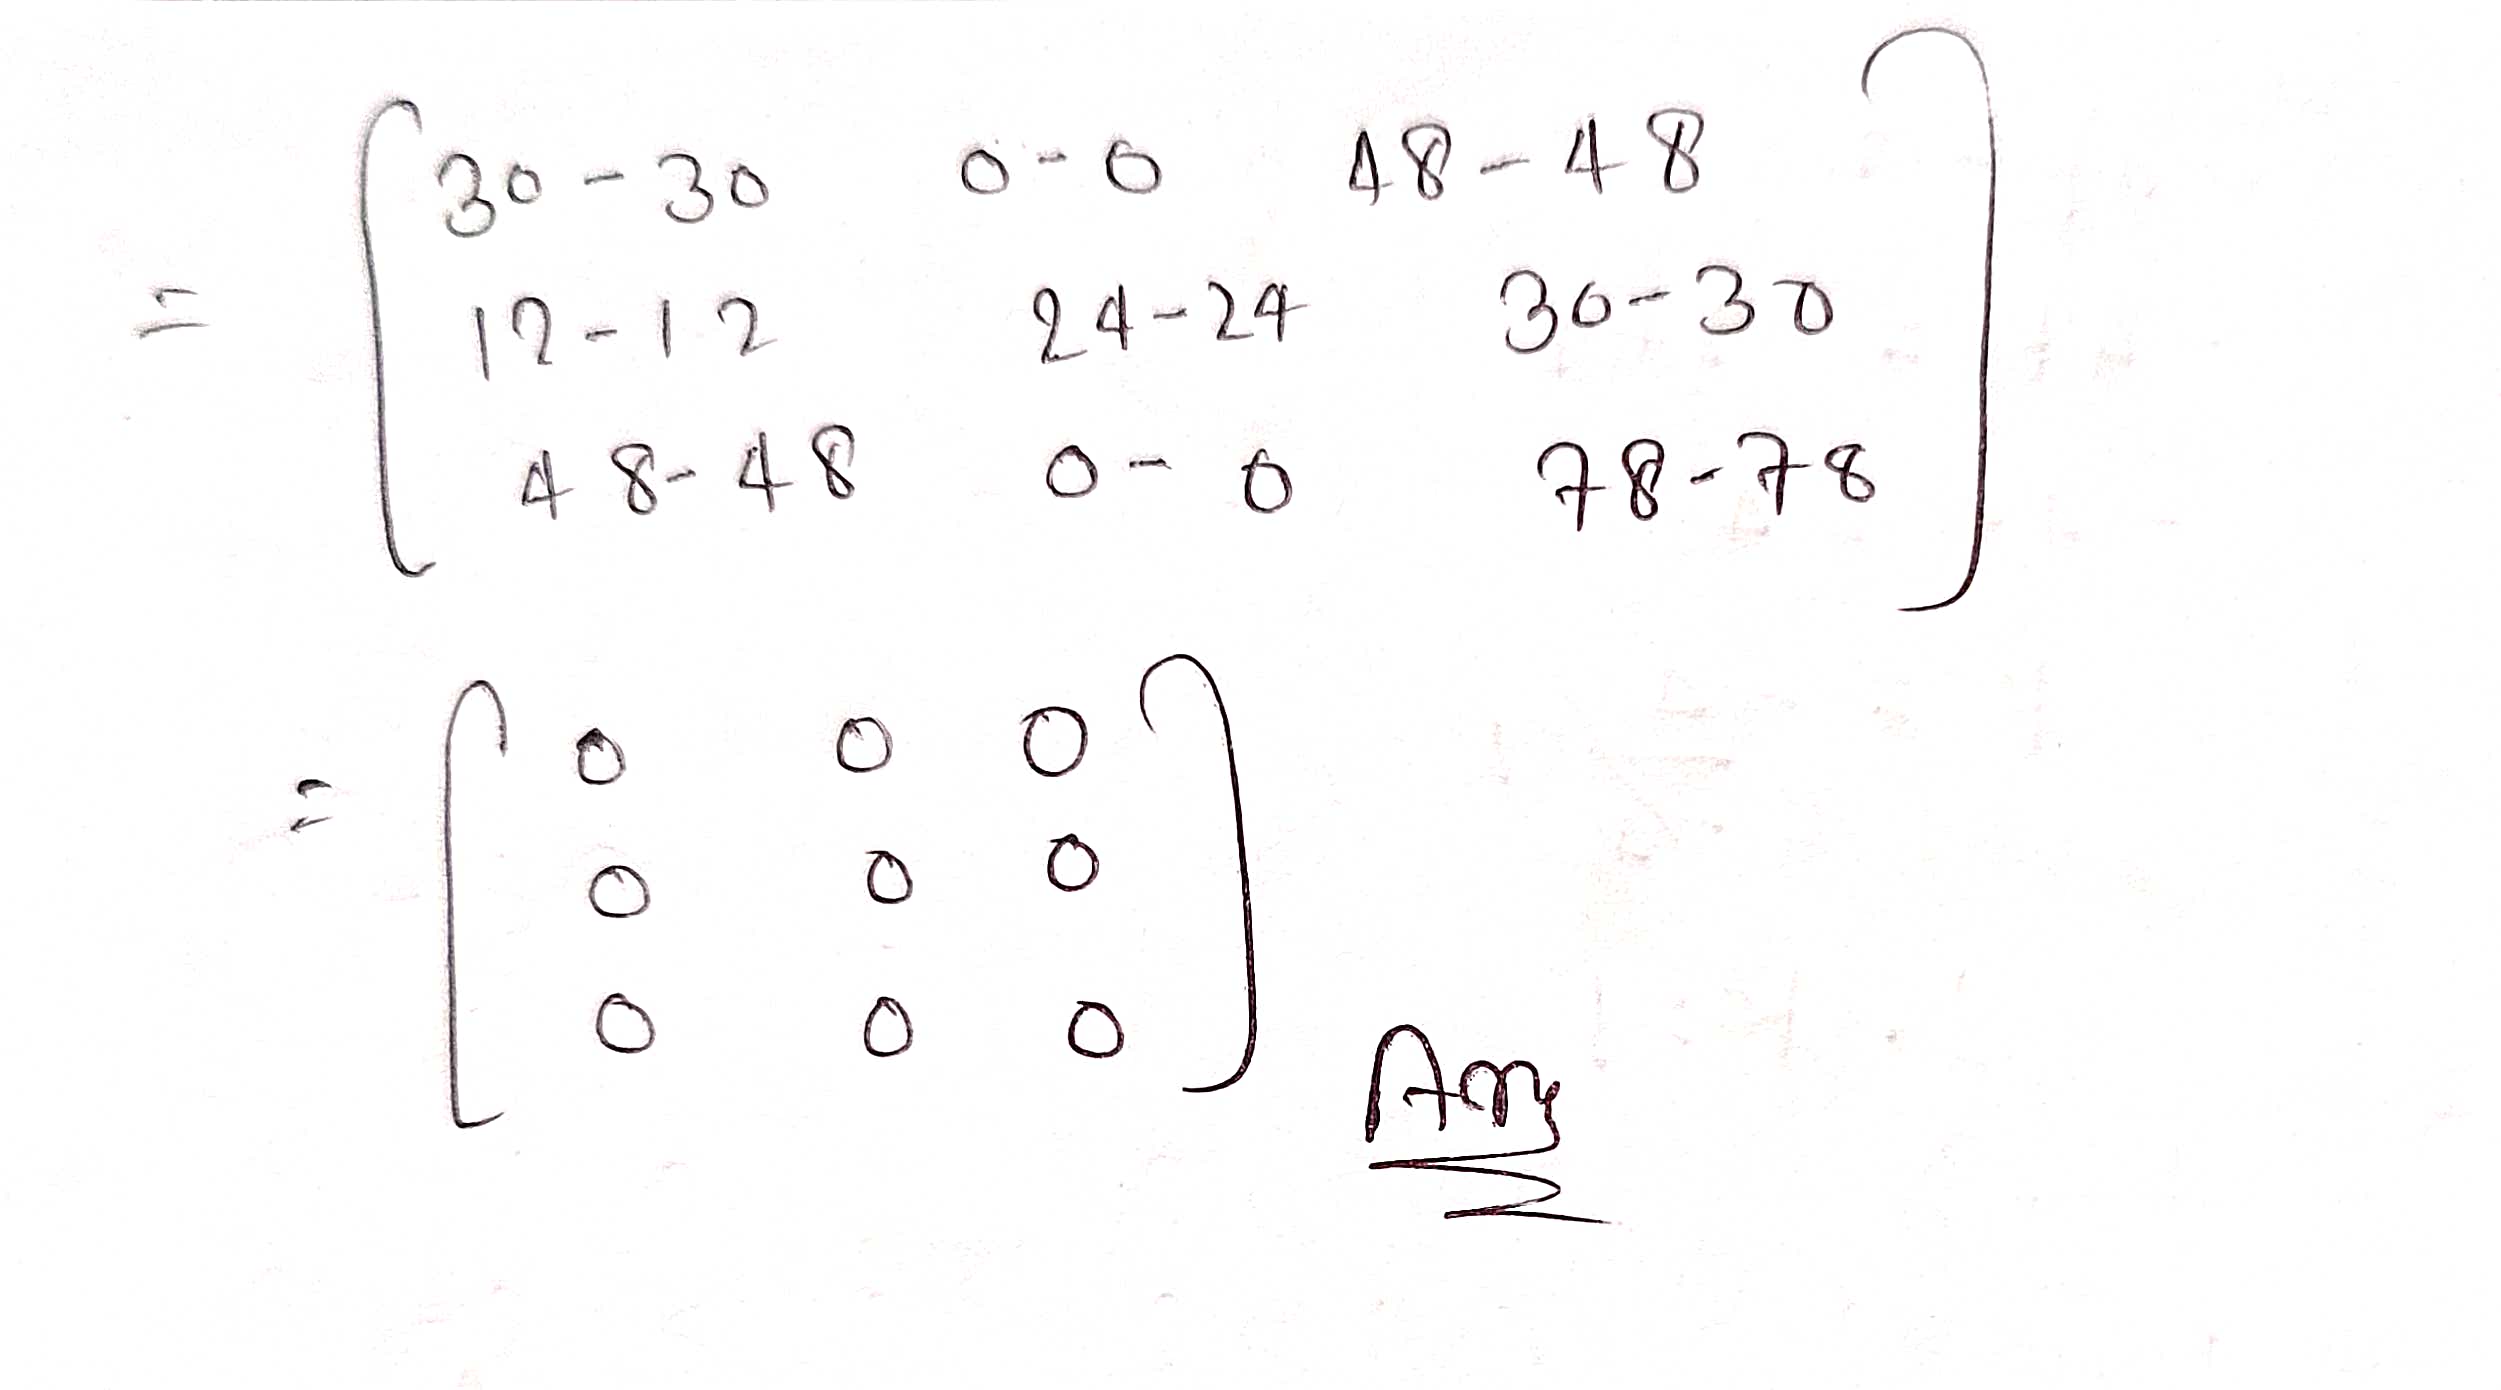 30-30 0-0 48-48
= 12-12 24-24 30-30
48-48 0-0 78-78
0 0 0
= 0 0 0
0 0 0
Ans